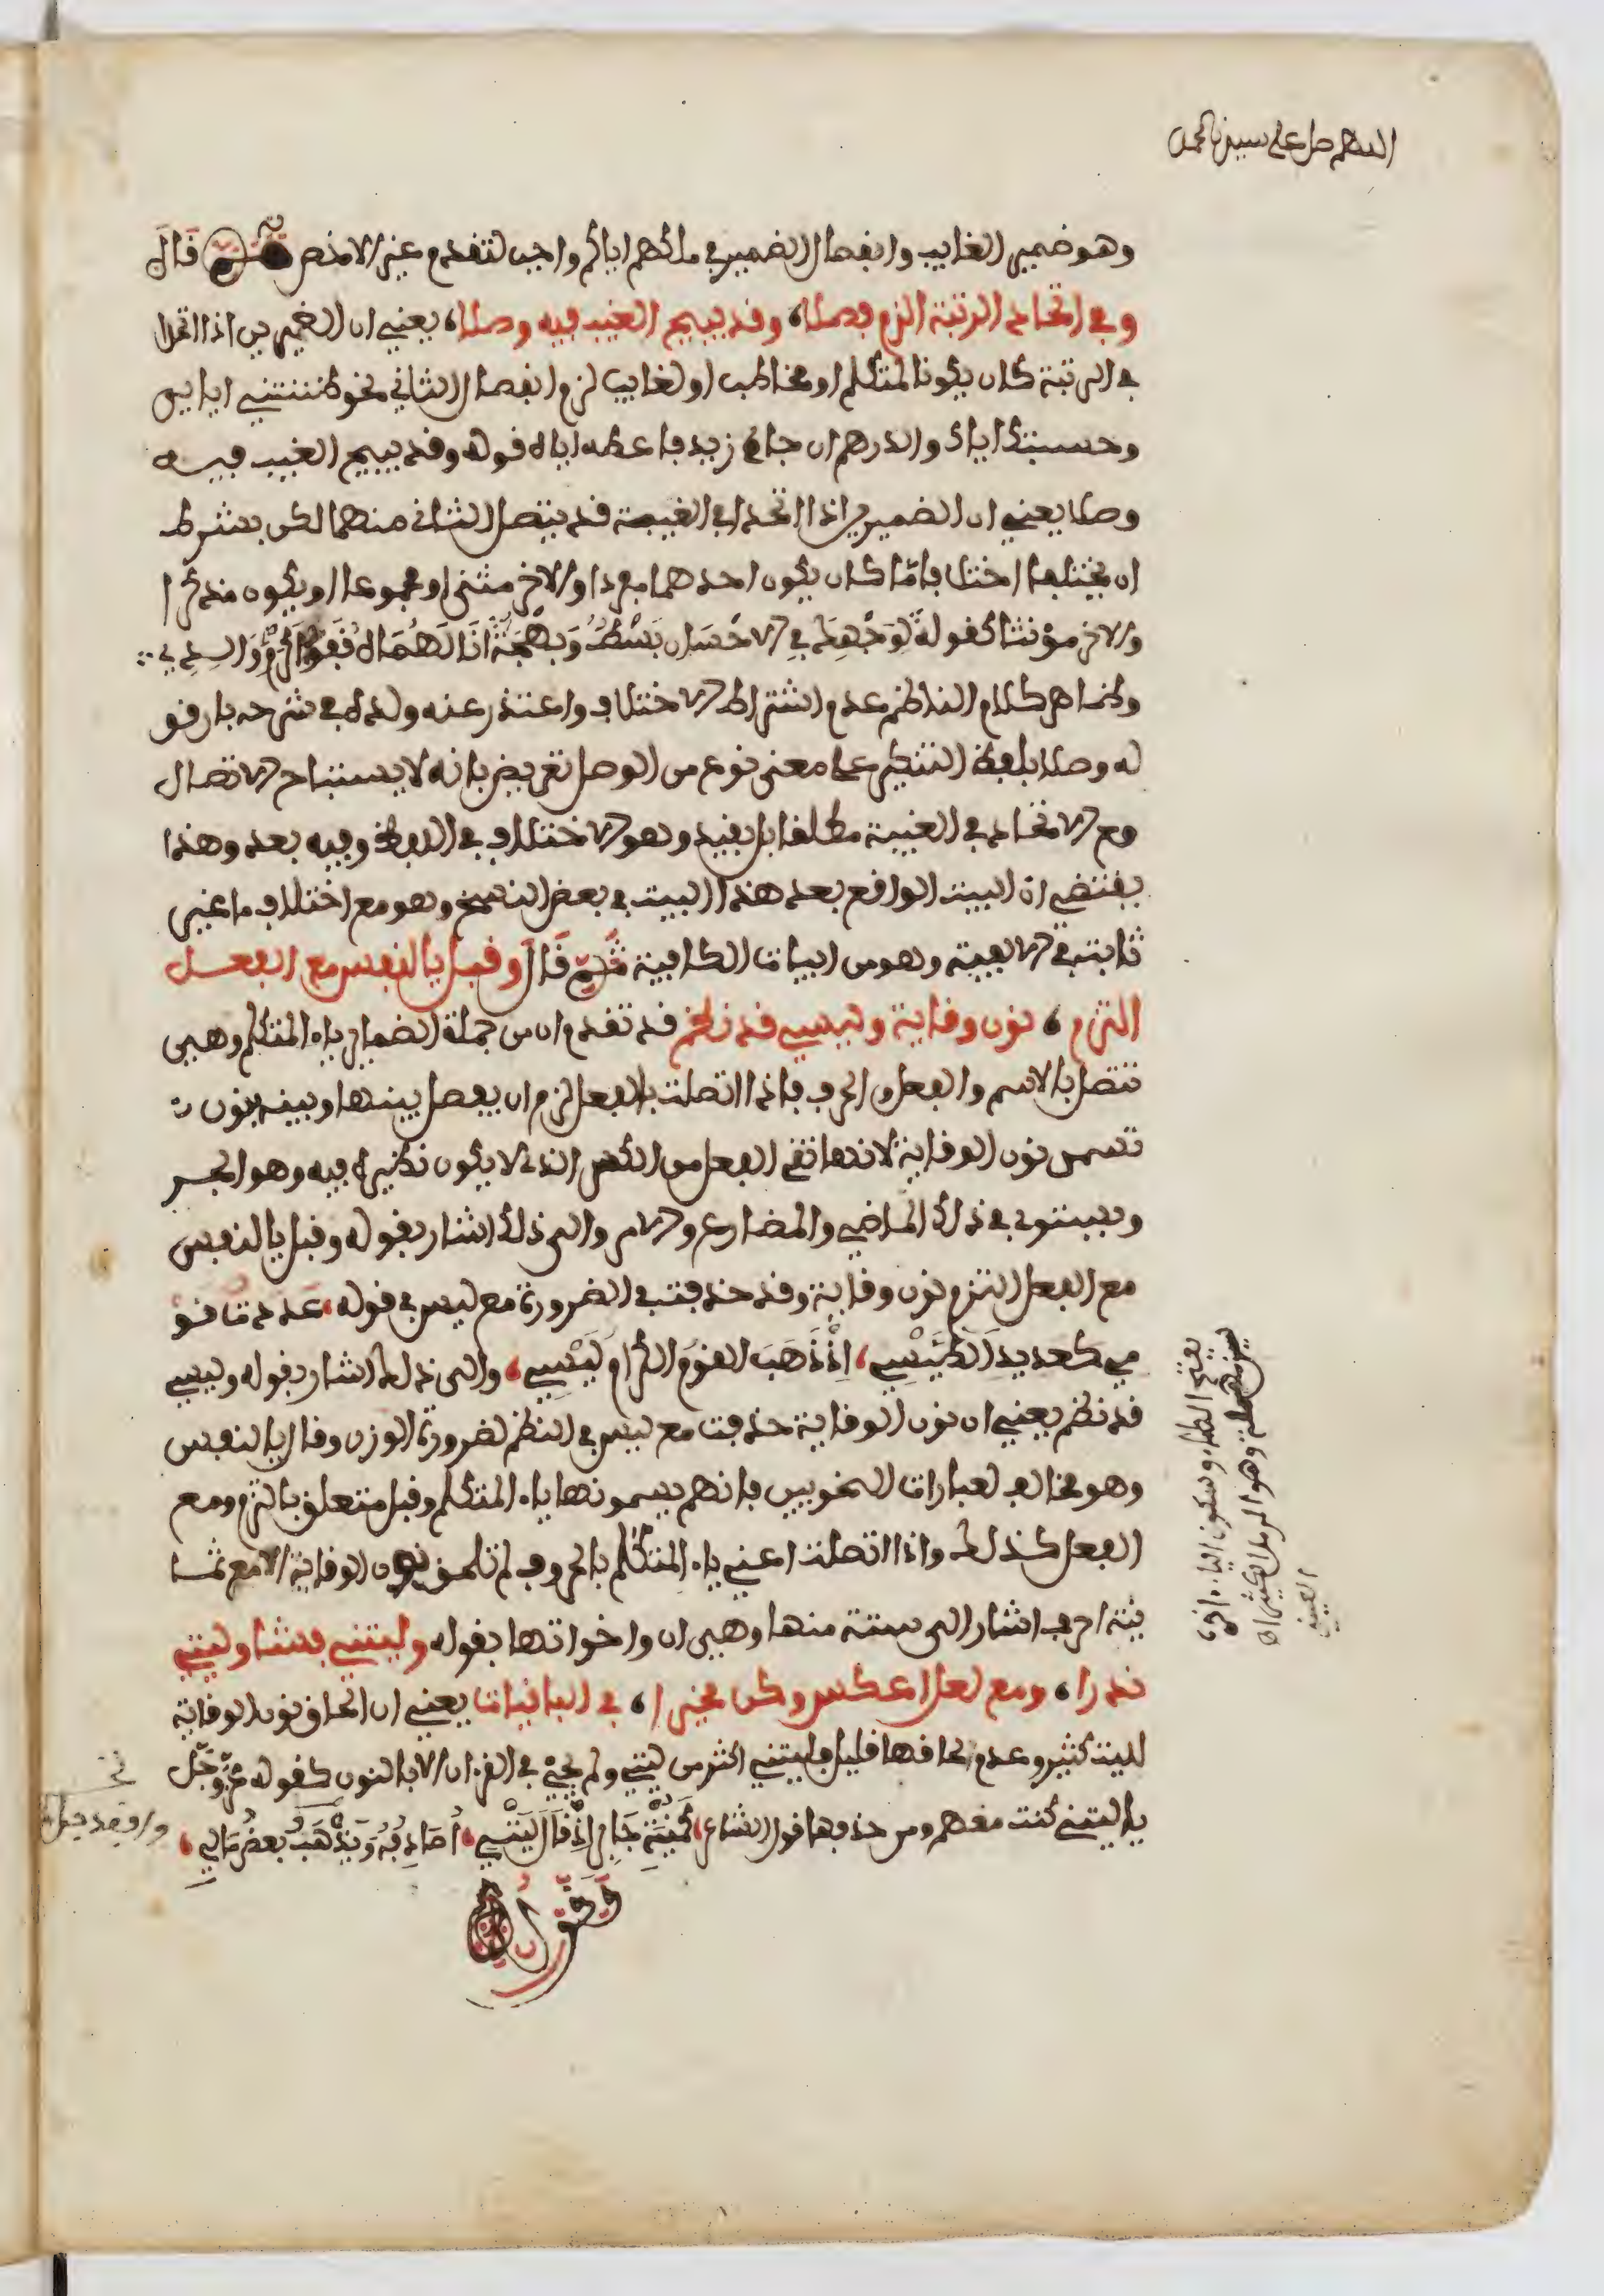 اللهم صل على سيدنا محمد
وهو ضمير الغايب وانفصال الضمير في ملكهم اياكم واجب لتقدم غير الاخص ثم قال
وفي اتحاد الرتبة الزم فصلا، وقد يبيح الغيب فيه وصلا، يعني ان الضميرين اذا اتحدا
في الرتبة كان يكونا لمتكلم او مخاطب او لغايب لزم انفصال الثاني نحو ظننتني اياي
وحسبتك اياك والدرهم ان جاءك زيد فاعطه اياه قوله وقد يبيح الغيب فيه
وصلا يعني ان الضميرين اذا اتحدا في الغيبة قد يتصل الثاني منهما لكن بشرط
ان يختلفا اختلافا ما كان يكون احدهما مفردا والاخر مثنى او مجموعا او يكون مذكرا
والاخر مؤنثا كقوله لِوَجْهِكَ فِي الاحْسَانِ بَسْطٌ وَبَهْجَةٌ انَالَهُمَاهُ قَفْوُ اَكْرَمِ وَالِدِ
وظاهر كلام الناظم عدم اشتراط الاختلاف واعتذر عنه ولده في شرحه بان قو
له وصلا بلفظ التنكير على معنى نوع من الوصل تعريض بانه لا يستباح الاتصال
مع الاتحاد في الغيبة مطلقا بل بقيد وهو الاختلاف في اللفظ وفيه بعد وهذا
يقتضي ان البيت الواقع بعد هذا البيت في بعض النسخ وهو مع اختلاف ما غير
ثابت في الالفية وهو من ابيات الكافية ثم قال وقبل يا النفس مع الفعل
التزم، نون وقاية وليسي قد نظم قد تقدم ان من جملة الضماير ياء المتكلم وهي
تتصل بالاسم والفعل والحرف فاذا اتصلت بالفعل لزم ان يفصل بينها وبينه بنون
تسمى نون الوقاية لانها تقي الفعل من الكسر الذي لا يكون نظيره فيه وهو الجر
ويستوي في ذلك الماضي والمضارع والامر والى ذلك اشار بقوله وقبل يا النفس
مع الفعل التزم نون وقاية وقد حذفت في الضرورة مع ليس في قوله، عددت قو
مي كعديد الطَّيْسِ، اِذْ ذَهَبَ القومُ الكرامُ لَيْسِي، والى ذلك اشار بقوله وليسي
قد نظم يعني ان نون الوقاية حذفت مع ليس في النظم لضرورة الوزن وقال يا النفس
وهو مخالف لعبارات النحويين فانهم يسمونها ياء المتكلم وقبل متعلق بالتزم ومع
الفعل كذلك واذا اتصلت اعني ياء المتكلم بالحروف لم تلحق نون الوقاية الا مع ثما
نية احرف اشار الى ستة منها وهي ان واخواتها بقوله وليتني فشا وليتي
ندرا، ومع لعل اعكس وكن مخيرا، في الباقيات يعني ان الحاق نون الوقاية
لليت كثير وعدم لحاقها قليل فليتني اكثر من ليتي ولم يجئ في القرءان الا بالنون كقوله عز وجل
يا ليتني كنت معهم ومن حذفها قول الشاعر، كَمُنْيَةِ جَابِرٍ اِذْ قَالَ لَيْتِي، اُصَادِفُهُ وَيَذْهَبُ بعضُ مالي،
وقوله
بفتح الطاء وسكون الياء واخره
سين مهملة وهو الرمل الكثير ان
العيني